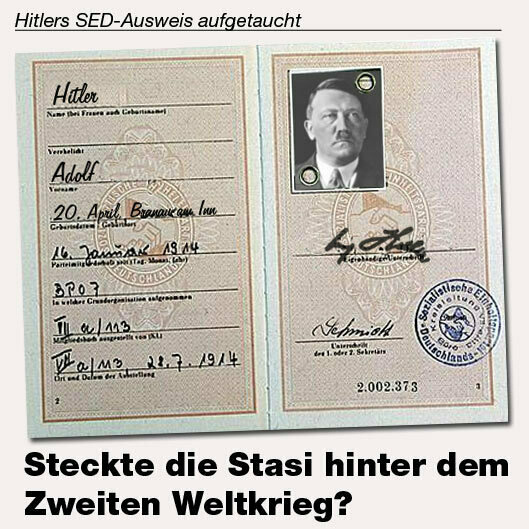 Hitlers SED-Ausweis aufgetaucht
Hitler
Name (bei Frauen auch Geburtsname)
Verehelicht
Adolf
Vorname
20. April, Branau am Inn
Geburtsdatum Geburtsort
16. Januar 1914
Parteimitgliedschaft seit (Tag, Monat, Jahr)
BPO7
In welcher Grundorganisation aufgenommen
VII a/113
Mitgliedsbuch ausgestellt von (KL)
VII a/113 28.7.1914
Ort und Datum der Ausstellung
2
Eigenhändige Unterschrift
Schmidt
Unterschrift
des 1. oder 2. Sekretärs
Sozialistische Einheitspartei
Deutschlands
Kreisleitung
Büro
2.002.373
3
Steckte die Stasi hinter dem
Zweiten Weltkrieg?